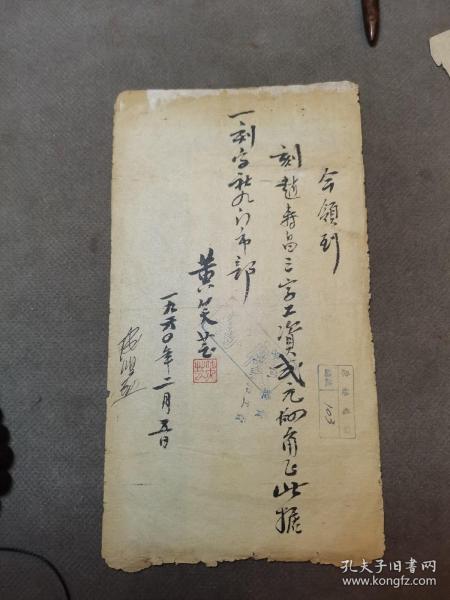 今領到
刻趙壽昌三字工資貳元捌角正此據
一刻字社九门市部
黄笑芸
一九六〇年二月五日
103
孔夫子旧书网
www.kongfz.com